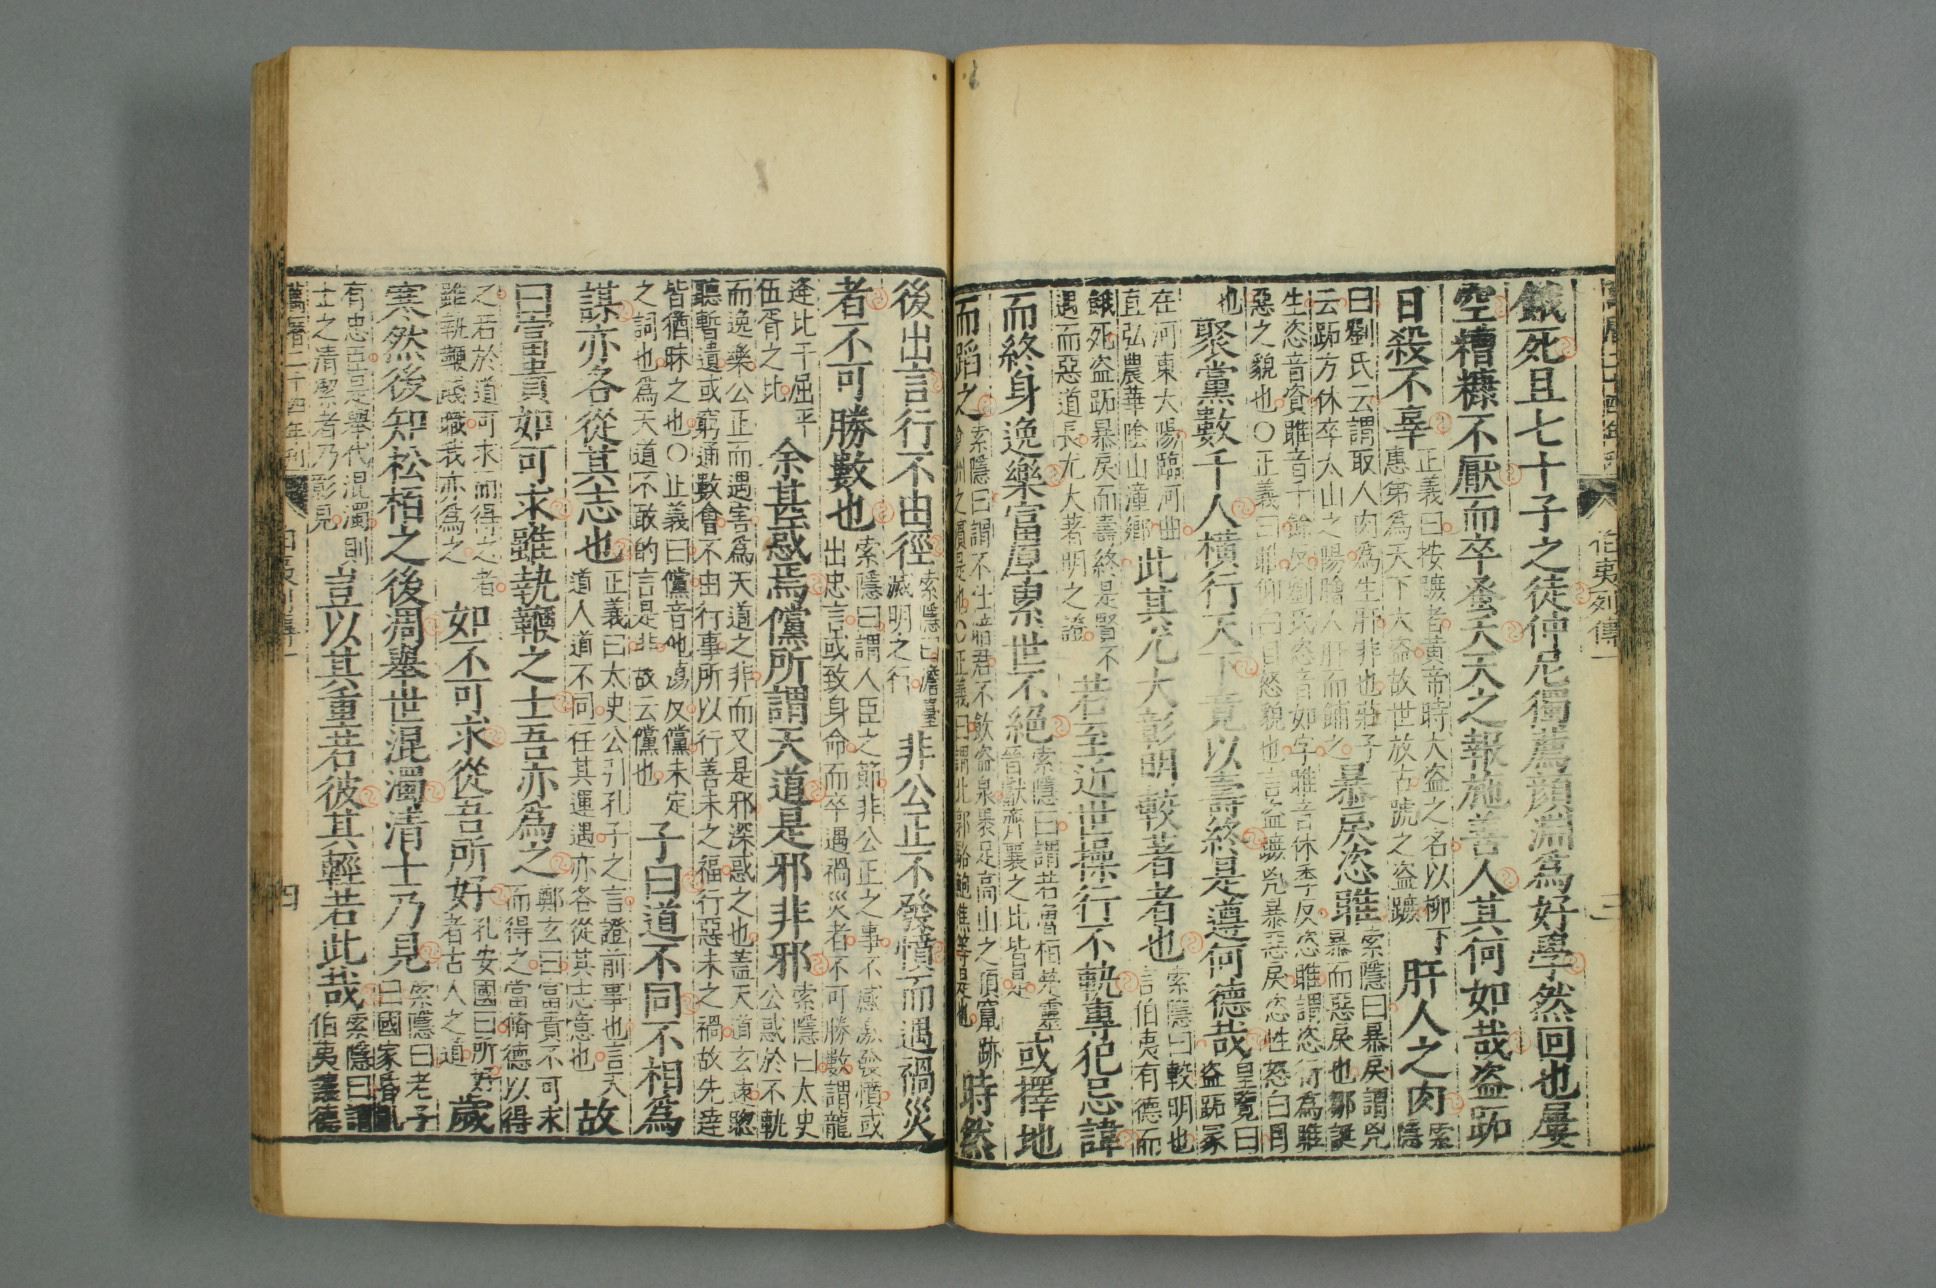 伯夷列傳一
三
餓死且七十子之徒仲尼獨薦顏淵爲好學然回也屢
空糟糠不厭而卒蚤夭天之報施善人其何如哉盜跖
日殺不辜正義曰按蹠者黃帝時大盜之名以柳下惠弟爲天下大盜故世放古號之盜蹠肝人之肉索隱
曰劉氏云謂取人肉爲生肝非也莊子云跖方休卒太山之陽膾人肝而餔之暴戾恣睢索隱曰暴戾謂兇暴而惡戾也鄒誕
生恣音資睢音千餘反劉氏恣音如字睢音休季反恣睢謂恣行爲睢惡之貌也○正義曰睢仰白目怒貌也言盜蹠兇暴惡戾恣性怒白目
也聚黨數千人橫行天下竟以壽終是遵何德哉皇覽曰盜跖冢
在河東大陽臨河曲直弘農華陰山潼鄉此其尤大彰明較著者也索隱曰較明也言伯夷有德而
餓死盜跖暴戾而壽終是賢不遇而惡道長尤大著明之證若至近世操行不軌專犯忌諱
而終身逸樂富厚累世不絕索隱曰謂若魯桓楚靈晉獻齊襄之比皆是或擇地
而蹈之索隱曰謂不仕暗君不飲盜泉裹足高山之頂竄跡滄洲之濱是也○正義曰謂北郭駱鮑焦等是也時然
後出言行不由徑索隱曰澹臺滅明之行非公正不發憤而遇禍災
者不可勝數也索隱曰謂人臣之節非公正之事不感激發憤或出忠言或致身命而卒遇禍災者不可勝數謂龍
逄比干屈平伍胥之比余甚惑焉儻所謂天道是邪非邪索隱曰太史公惑於不軌
而逸樂公正而遇害爲天道之非而又是邪深惑之也蓋天道玄遠聰聽暫遺或窮通數會不由行事所以行善未之福行惡未之禍故先達
皆猶昧之也○正義曰儻音他蕩反儻未定之詞也爲天道不敢的言是非故云儻也子曰道不同不相爲
謀亦各從其志也正義曰太史公引孔子之言證前事也言天道人道不同任其運遇亦各從其志意也故
曰富貴如可求雖執鞭之士吾亦爲之鄭玄曰富貴不可求而得之當脩德以得
之若於道可求而得之者雖執鞭賤職我亦爲之如不可求從吾所好孔安國曰所好者古人之道歲
寒然後知松栢之後凋舉世混濁清士乃見索隱曰老子曰國家昏亂
有忠臣是舉代混濁則士之清潔者乃彰見豈以其重若彼其輕若此哉索隱曰謂伯夷讓德
萬曆二十四年刊
四